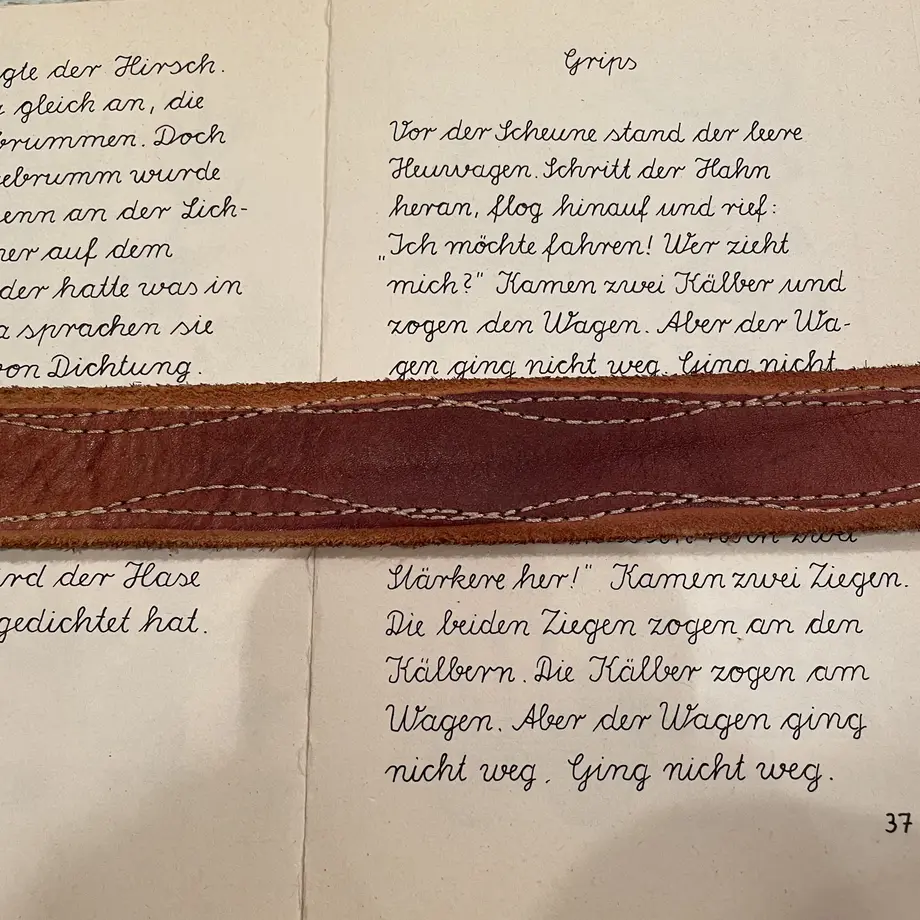 gte der Hirsch.
gleich an, die
brummen. Doch
ebrumm wurde
enn an der Lich-
er auf dem
der hatte was in
a sprachen sie
on Dichtung.
rd der Hase
gedichtet hat.
Grips
Vor der Scheune stand der leere
Heuwagen. Schritt der Hahn
heran, flog hinauf und rief:
„Ich möchte fahren! Wer zieht
mich?" Kamen zwei Kälber und
zogen den Wagen. Aber der Wa-
gen ging nicht weg. Ging nicht
zwei
Stärkere her!" Kamen zwei Ziegen.
Die beiden Ziegen zogen an den
Kälbern. Die Kälber zogen am
Wagen. Aber der Wagen ging
nicht weg. Ging nicht weg.
37